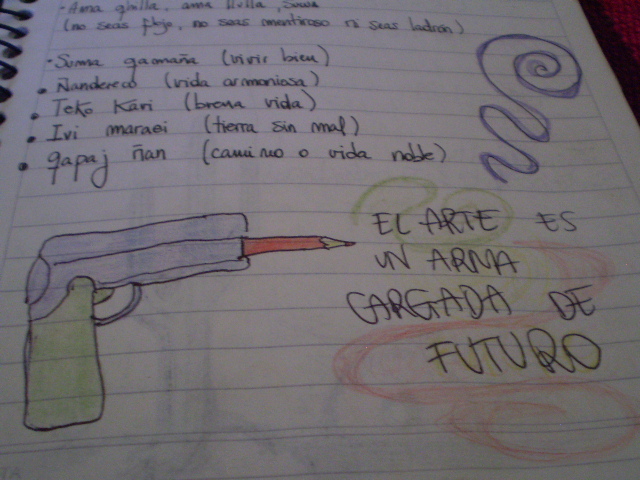 - Ama qhilla, ama llulla, suwa
(no seas flojo, no seas mentiroso ni seas ladrón)
- Suma qamaña (vivir bien)
• Ñandereco (vida armoniosa)
• Teko Kavi (buena vida)
• Ivi maraei (tierra sin mal)
• qapaj ñan (camino o vida noble)
EL ARTE ES
UN ARMA
CARGADA DE
FUTURO